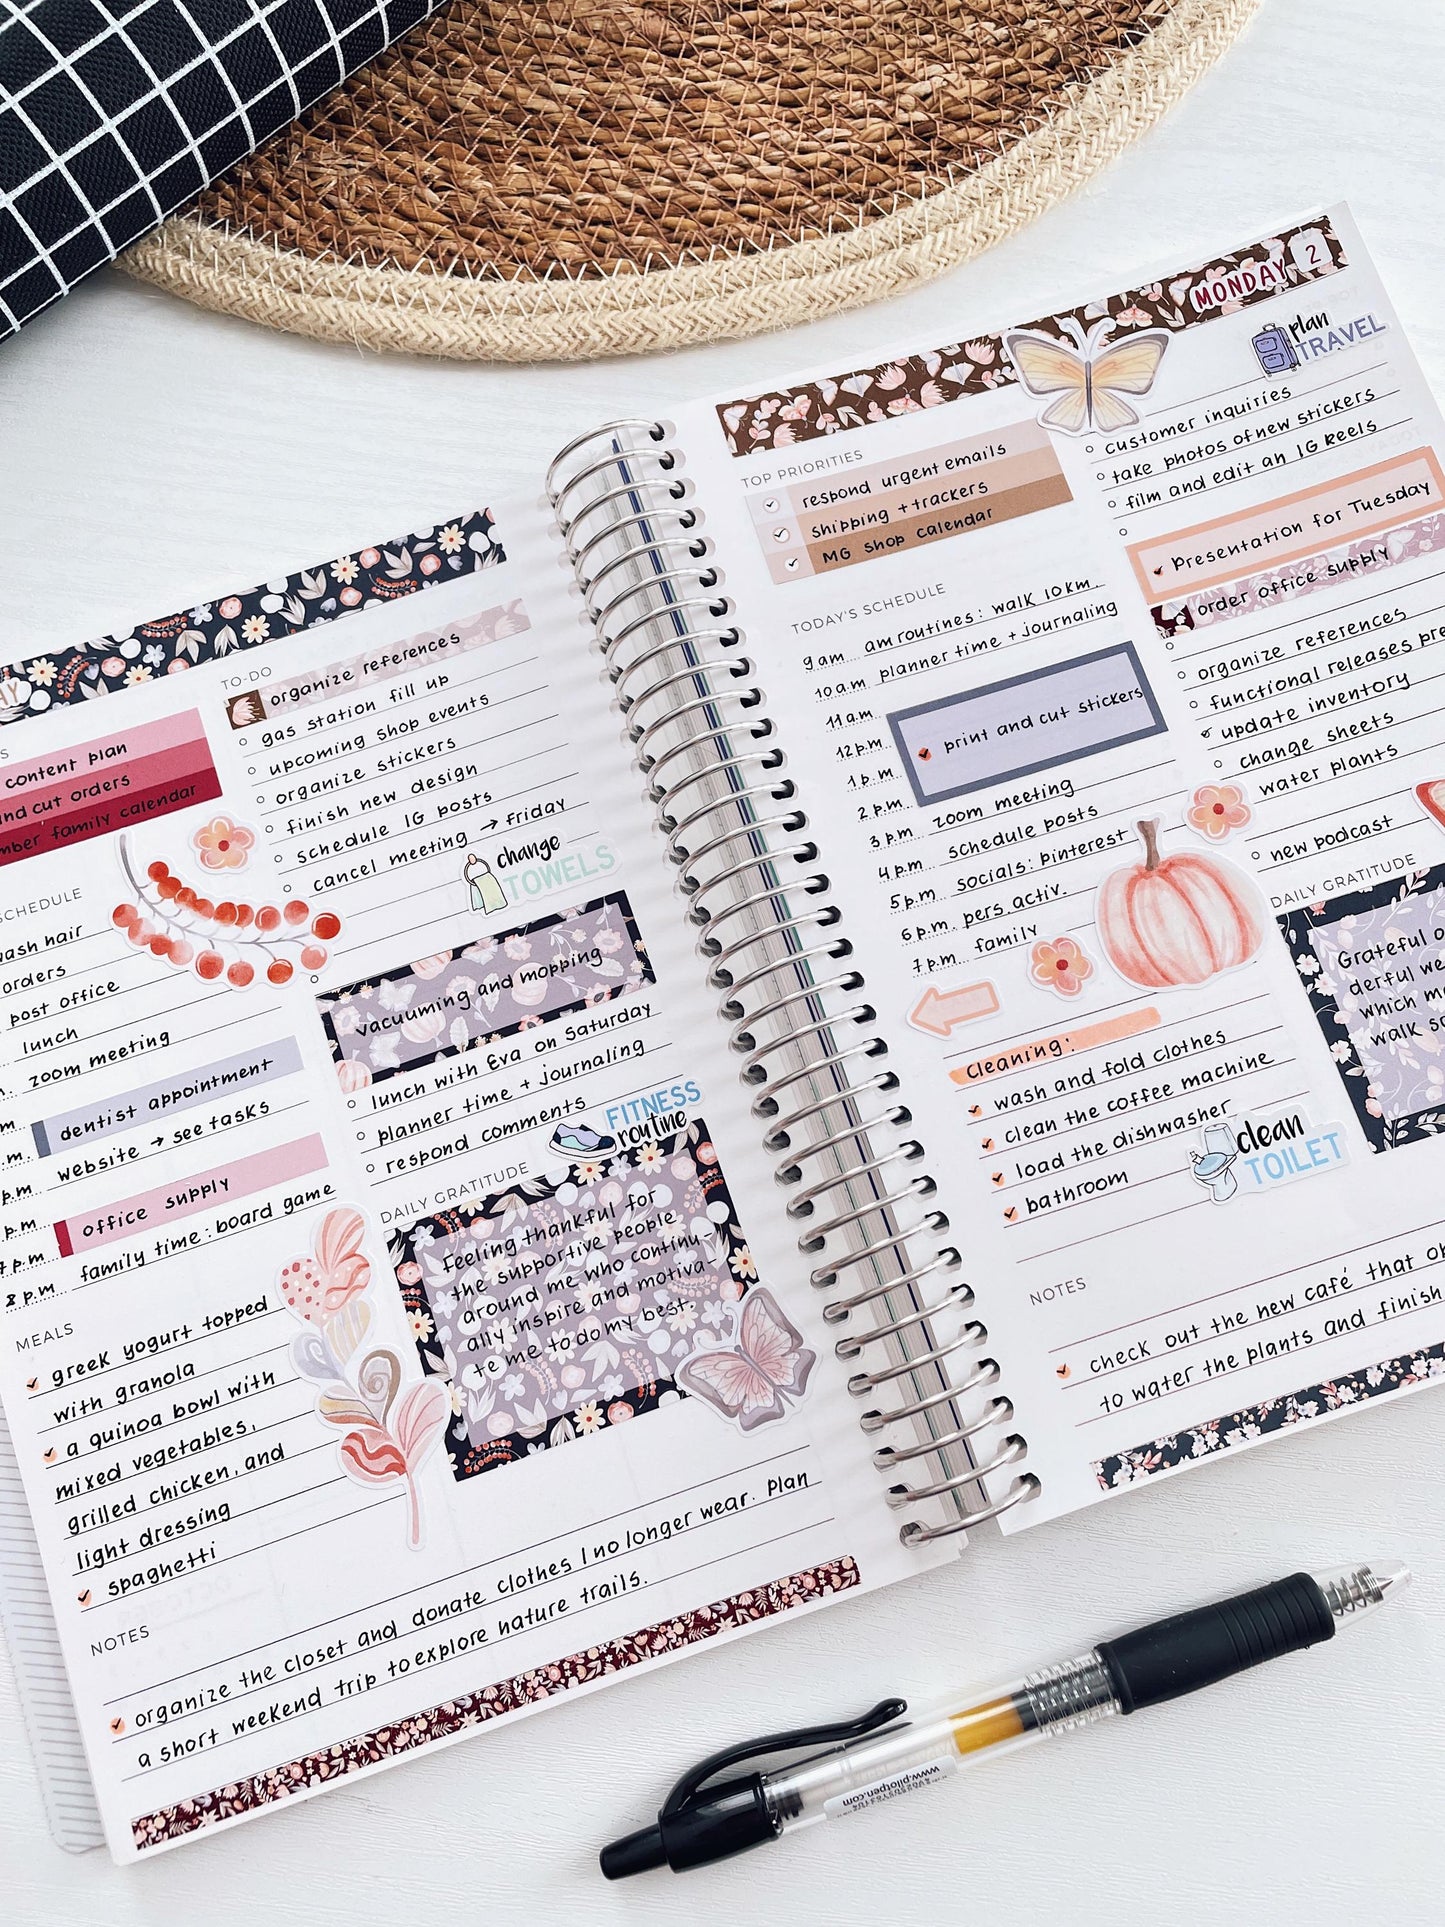 AY
TO-DO
organize references
gas station fill up
upcoming shop events
organize stickers
finish new design
schedule IG posts
cancel meeting → friday
change
TOWELS
content plan
cut orders
family calendar
SCHEDULE
hair
orders
post office
lunch
zoom meeting
dentist appointment
website → see tasks
office supply
family time: board game
8 p.m.
vacuuming and mopping
lunch with Eva on Saturday
planner time + journaling
respond comments
FITNESS
routine
DAILY GRATITUDE
Feeling thankful for
the supportive people
around me who continu-
ally inspire and motiva-
te me to do my best.
MEALS
greek yogurt topped
with granola
a quinoa bowl with
mixed vegetables,
grilled chicken, and
light dressing
spaghetti
NOTES
organize the closet and donate clothes I no longer wear. Plan
a short weekend trip to explore nature trails.
MONDAY 2
TOP PRIORITIES
respond urgent emails
shipping + trackers
MG shop calendar
TODAY'S SCHEDULE
9 am am routines: walk 10km.
10 a.m planner time + journaling
11 a.m
12 p.m print and cut stickers
1 p.m
2 p.m
3 p.m zoom meeting
4 p.m schedule posts
5 p.m socials: pinterest
6 p.m. pers. activ.
7 p.m family
cleaning:
wash and fold clothes
clean the coffee machine
load the dishwasher
bathroom
clean
TOILET
plan
TRAVEL
customer inquiries
take photos of new stickers
film and edit an IG Reels
Presentation for Tuesday
order office supply
organize references
functional releases
update inventory
change sheets
water plants
new podcast
DAILY GRATITUDE
Grateful
derful
which
walk
NOTES
check out the new café that
to water the plants and finish
www.pilotpen.com